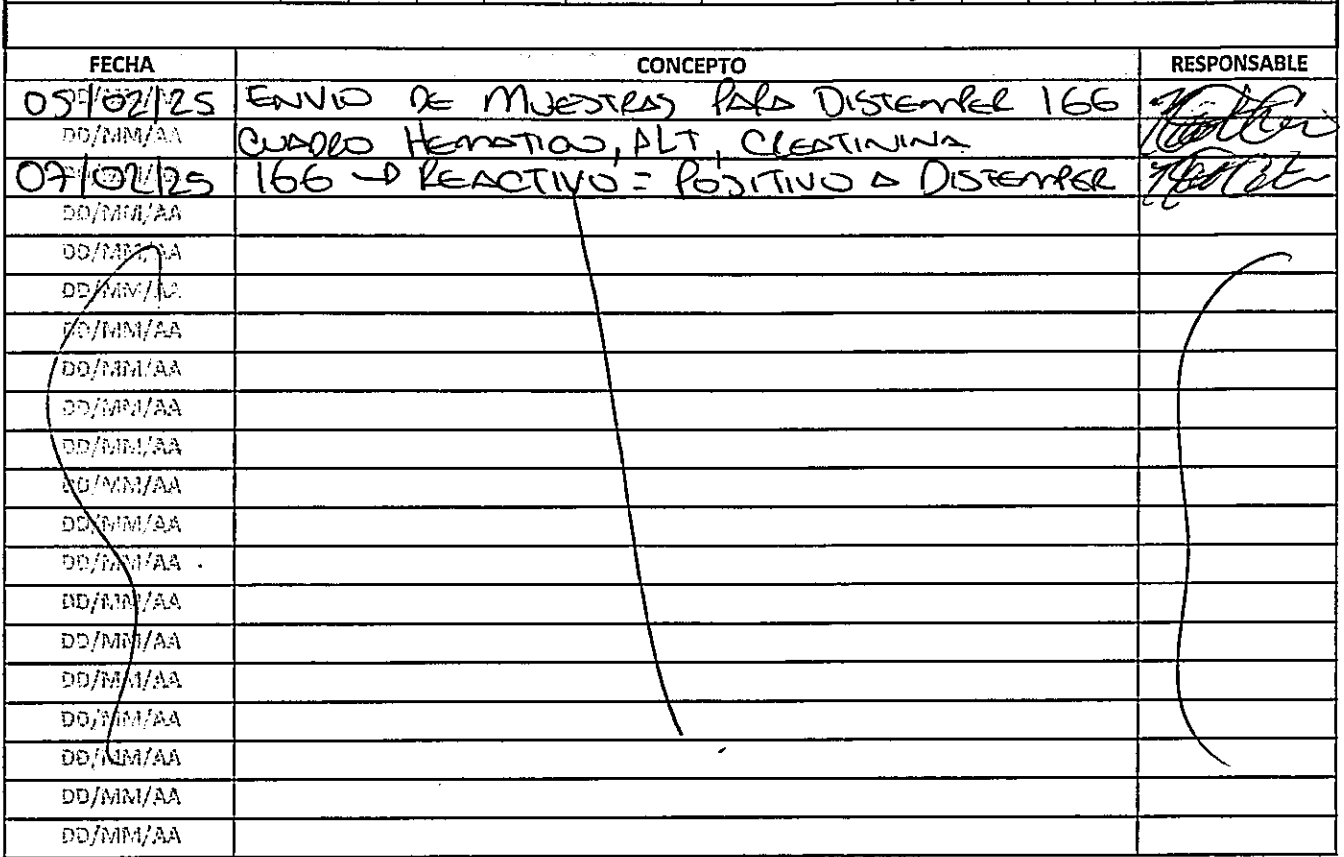 FECHA CONCEPTO RESPONSABLE
05/02/25 ENVIO DE MUESTRAS PARA DISTEMPER 166
DD/MM/AA CUADRO HEMATICO, ALT, CREATININA
07/02/25 166 → REACTIVO = POSITIVO A DISTEMPER
DD/MM/AA
DD/MM/AA
DD/MM/AA
DD/MM/AA
DD/MM/AA
DD/MM/AA
DD/MM/AA
DD/MM/AA
DD/MM/AA
DD/MM/AA
DD/MM/AA
DD/MM/AA
DD/MM/AA
DD/MM/AA
DD/MM/AA
DD/MM/AA
DD/MM/AA